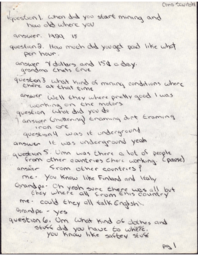 question 1. when did you start mining and
how old where you
answer. 1939 18
question 2. How much did you get paid like what
per hour
answer 7 dollars and 15¢ a day.
grandma thats true
question 3 what kind of mining conditions where
there at that time
answer. well they where pretty good I was
working on the motors
question what did you do
answer dirt
iron ore
question was it underground
answer It was underground yeah
question Umm was there a lot of people
from other countries there working (pause)
answer from other countries!
me. You know like Finland and Italy
Grandpa. Oh yeah sure there was all but
they where all from this country
me - could they all talk English.
Grandpa - yes
question 6. Um what kind of clothes and
stuff did you have to where.
you know like safety stuff
pg 1